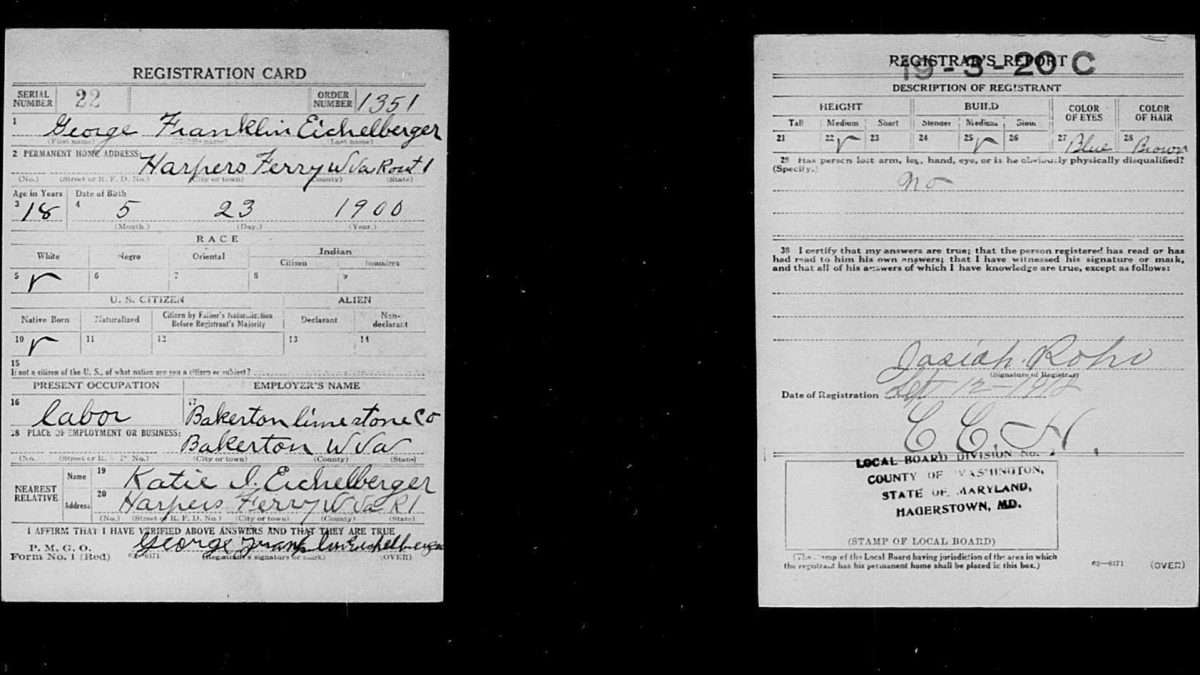 REGISTRATION CARD
SERIAL NUMBER 22 ORDER NUMBER 1351
1 George Franklin Eichelberger
(First name) (Last name)
2 PERMANENT HOME ADDRESS: Harpers Ferry W Va Rout 1
(No.) (Street or R. F. D. No.) (City or town) (County) (State)
Age in Years Date of Birth
3 18 4 5 23 1900
(Month.) (Day.) (Year.)
RACE
White Negro Oriental Indian
Citizen
5 6 7 8 9
U. S. CITIZEN ALIEN
Native Born Naturalized Citizen by Father's Naturalization Before Registrant's Majority Declarant Non-declarant
10 11 12 13 14
15
If not a citizen of the U. S., of what nation are you a citizen or subject?
PRESENT OCCUPATION EMPLOYER'S NAME
16 labor 17 Bakerton limestone Co
18 PLACE OF EMPLOYMENT OR BUSINESS: Bakerton W Va
(No. (Street or R. F. D. No.) (City or town) (County) (State)
NEAREST RELATIVE Name 19 Katie I. Eichelberger
Address 20 Harpers Ferry W Va R1
(No.) (Street or R. F. D. No.) (City or town) (County) (State)
I AFFIRM THAT I HAVE VERIFIED ABOVE ANSWERS AND THAT THEY ARE TRUE
P. M. G. O.
Form No. 1 (Red) George Franklin Eichelberger
(Registrant's signature or mark) (OVER)
REGISTRAR'S REPORT
19-3-20 C
DESCRIPTION OF REGISTRANT
HEIGHT BUILD COLOR OF EYES COLOR OF HAIR
Tall Medium Short Slender Medium Stout
21 22 23 24 25 26 27 Blue 28 Brown
29 Has person lost arm, leg, hand, eye, or is he obviously physically disqualified?
(Specify.) no
30 I certify that my answers are true; that the person registered has read or has
had read to him his own answers; that I have witnessed his signature or mark,
and that all of his answers of which I have knowledge are true, except as follows:
Josiah Rohr
(Signature of Registrar)
Date of Registration Sept 12-1918
C C. H
LOCAL BOARD DIVISION No.
COUNTY OF WASHINGTON,
STATE OF MARYLAND,
HAGERSTOWN, MD.
(STAMP OF LOCAL BOARD)
(The stamp of the Local Board having jurisdiction of the area in which
the registrant has his permanent home shall be placed in this box.) 63-6171 (OVER)